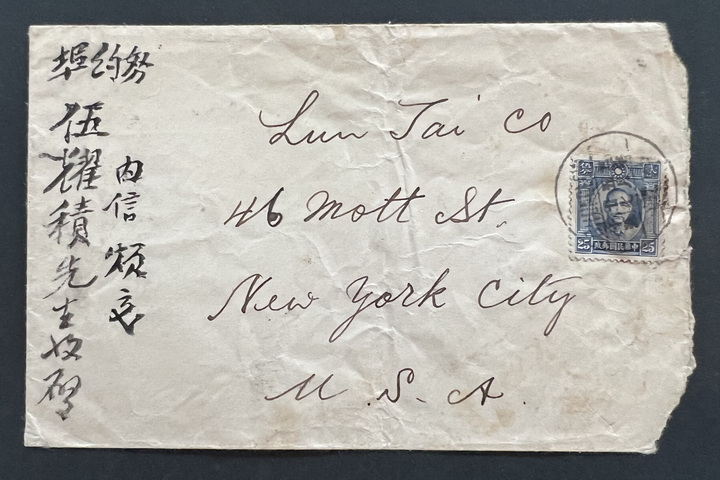 努約埠
內信煩交
伍耀積先生收啓
Lun Tai Co
46 Mott St.
New York City
U.S.A.
中華民國郵政
25 25